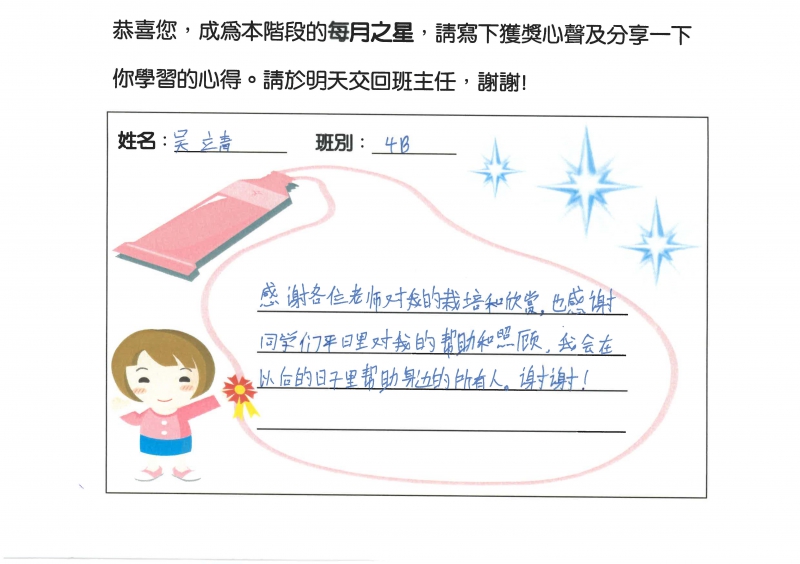 恭喜您，成為本階段的每月之星，請寫下獲獎心聲及分享一下
你學習的心得。請於明天交回班主任，謝謝!
姓名：吴立青
班別：4B
感谢各位老师对我的栽培和欣赏，也感谢
同学们平日里对我的帮助和照顾，我会在
以后的日子里帮助身边的所有人。谢谢！